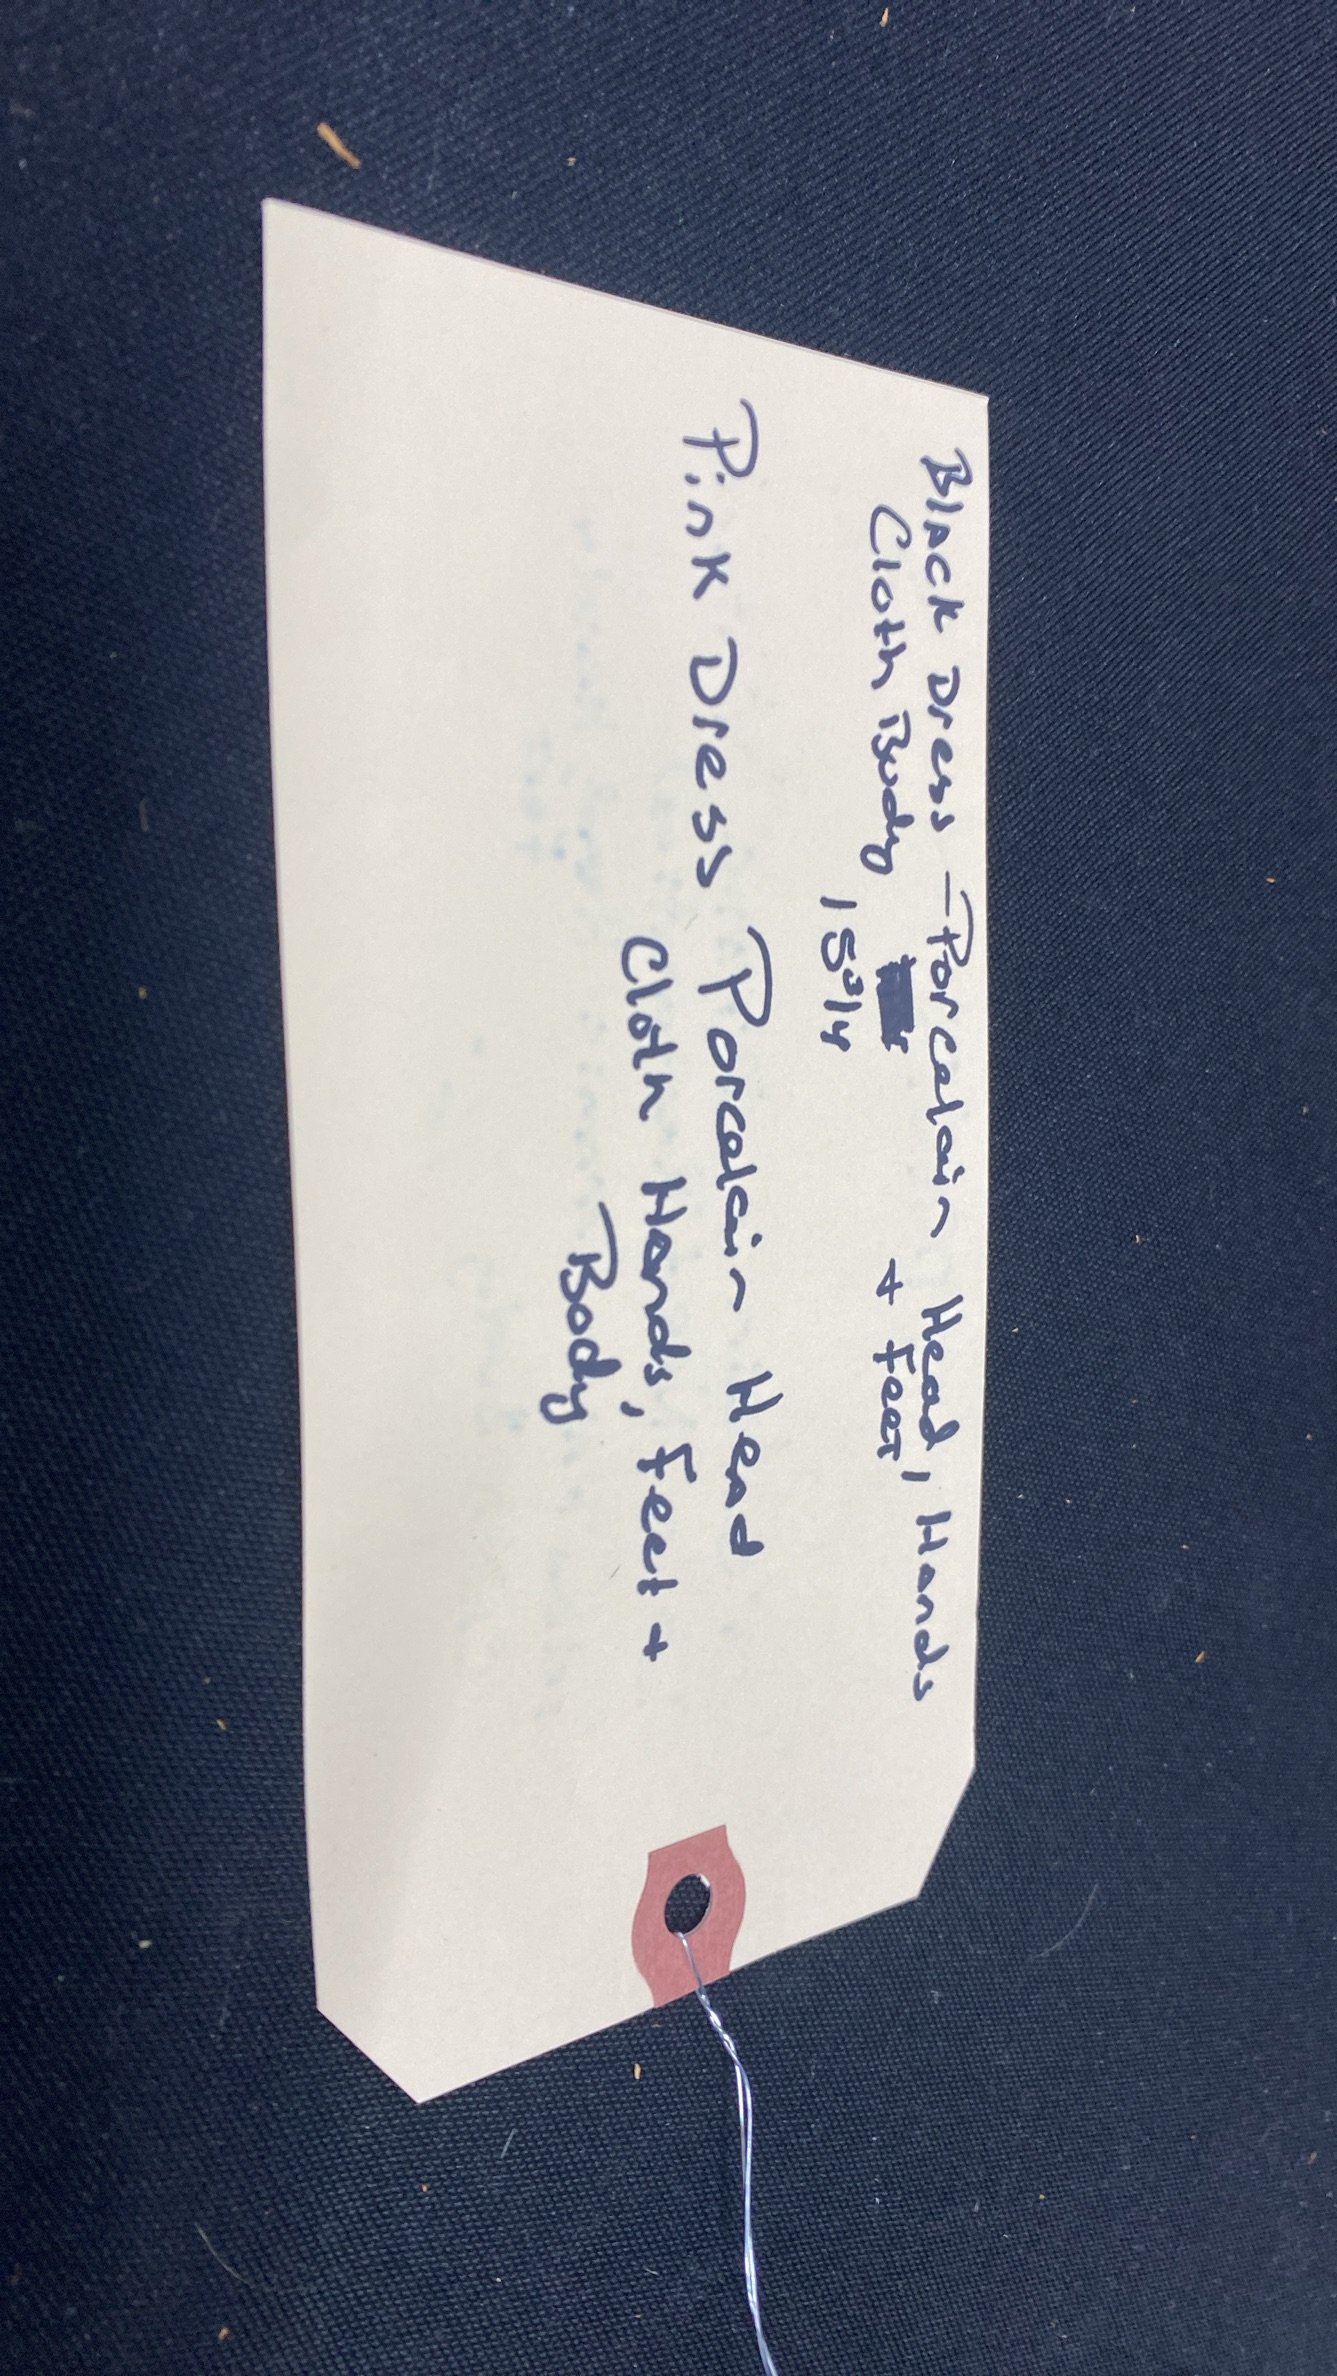 Black Dress - Porcelain Head, Hands
Cloth Body + Feet
15 3/4
Pink Dress Porcelain Head
Cloth Hands, Feet +
Body